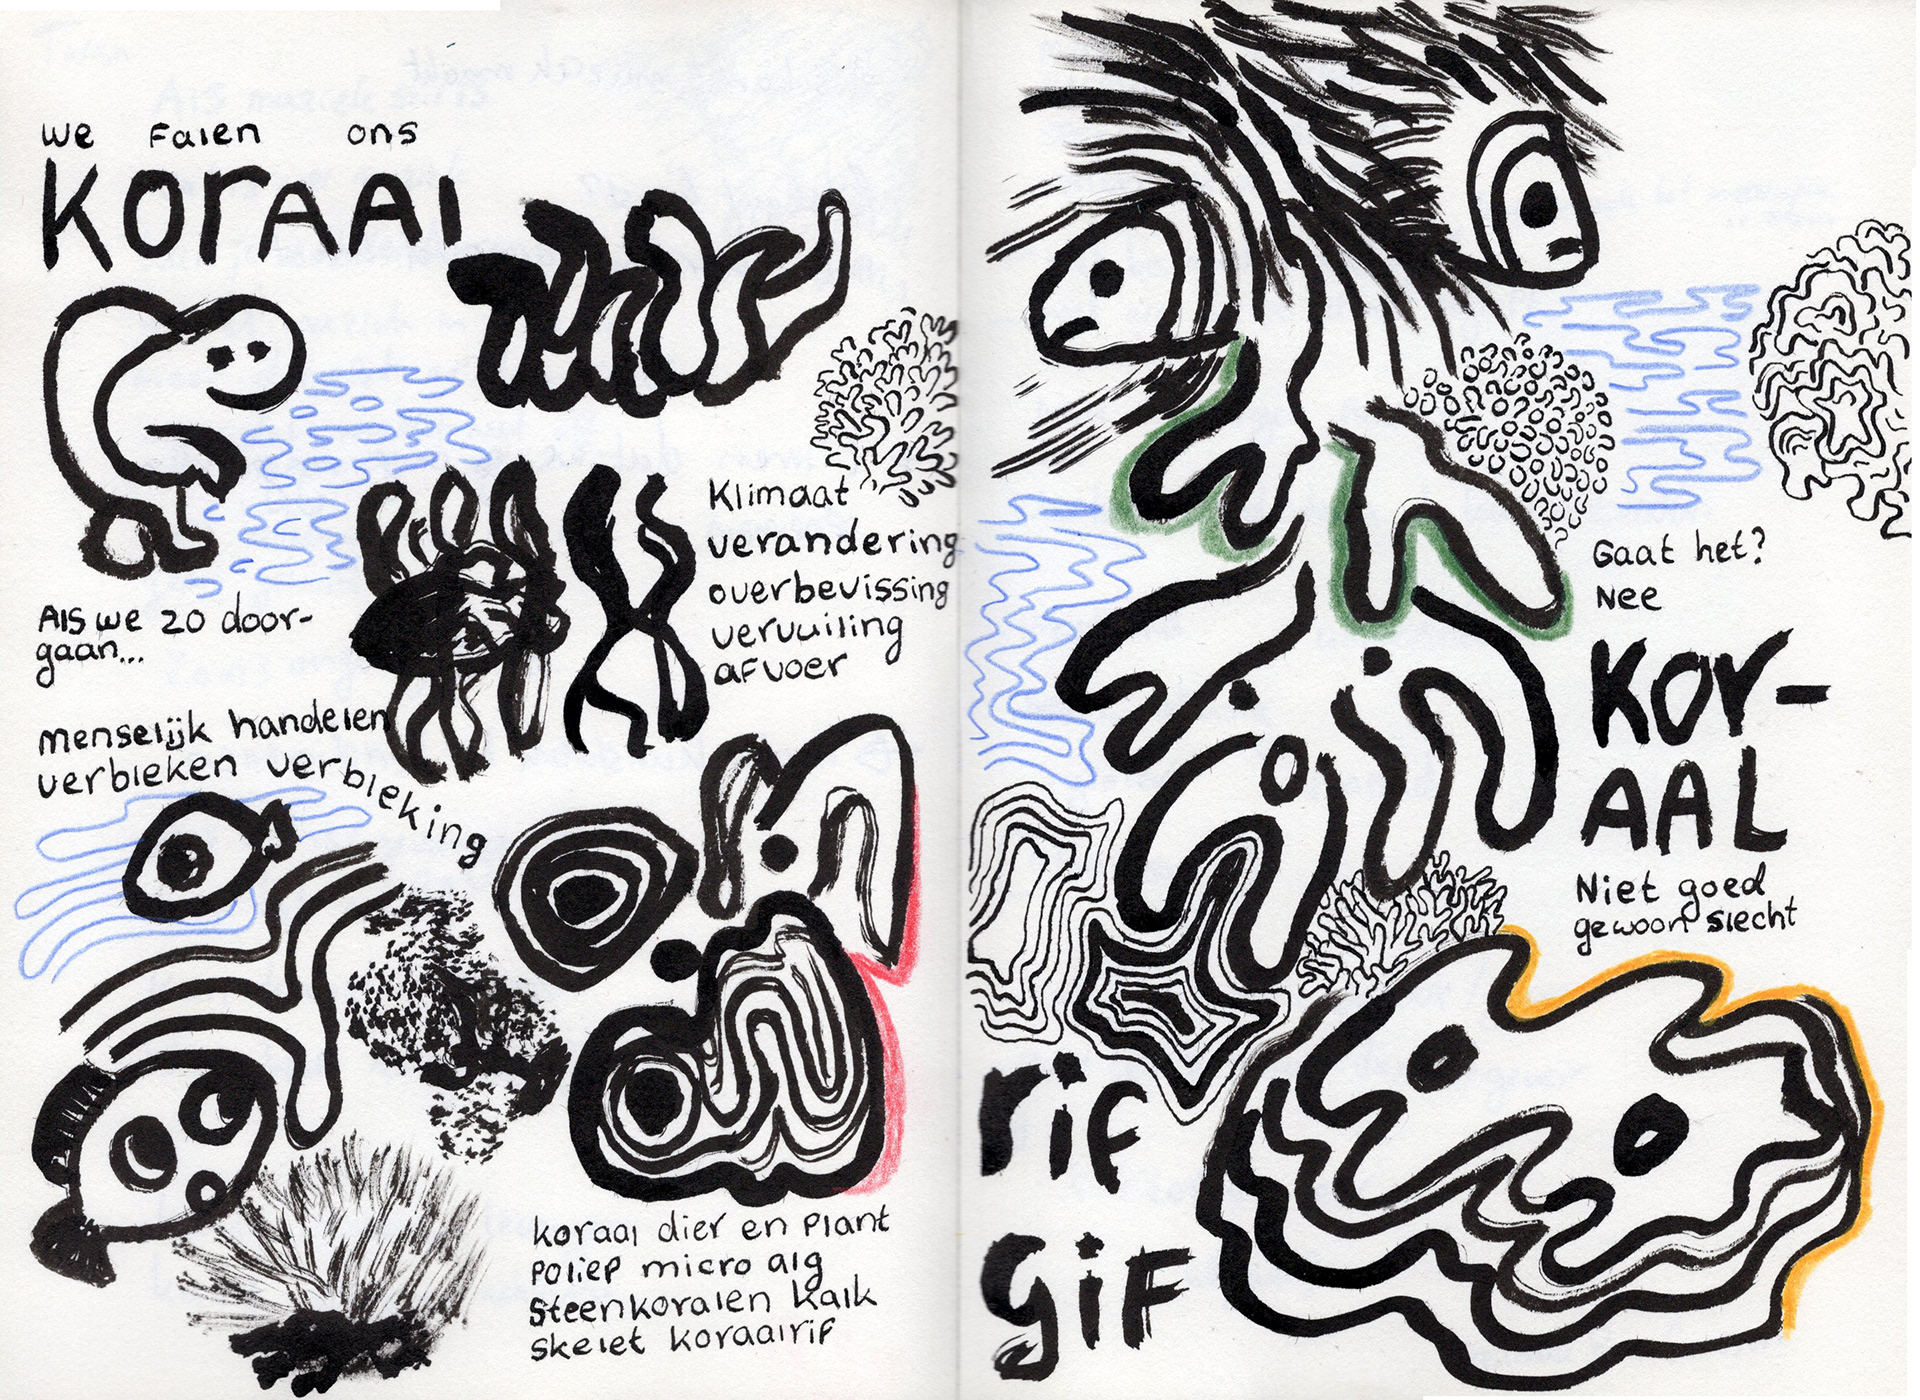 we Falen ons
koraal
Als we zo door-
gaan...
Klimaat
verandering
overbevissing
vervuiling
afvoer
menselijk handelen
verbleken verbleking
koraal dier en plant
poliep micro alg
Steenkoralen kalk
skelet koraalrif
Gaat het?
Nee
KOR-
AAL
Niet goed
gewoon slecht
rif
giF